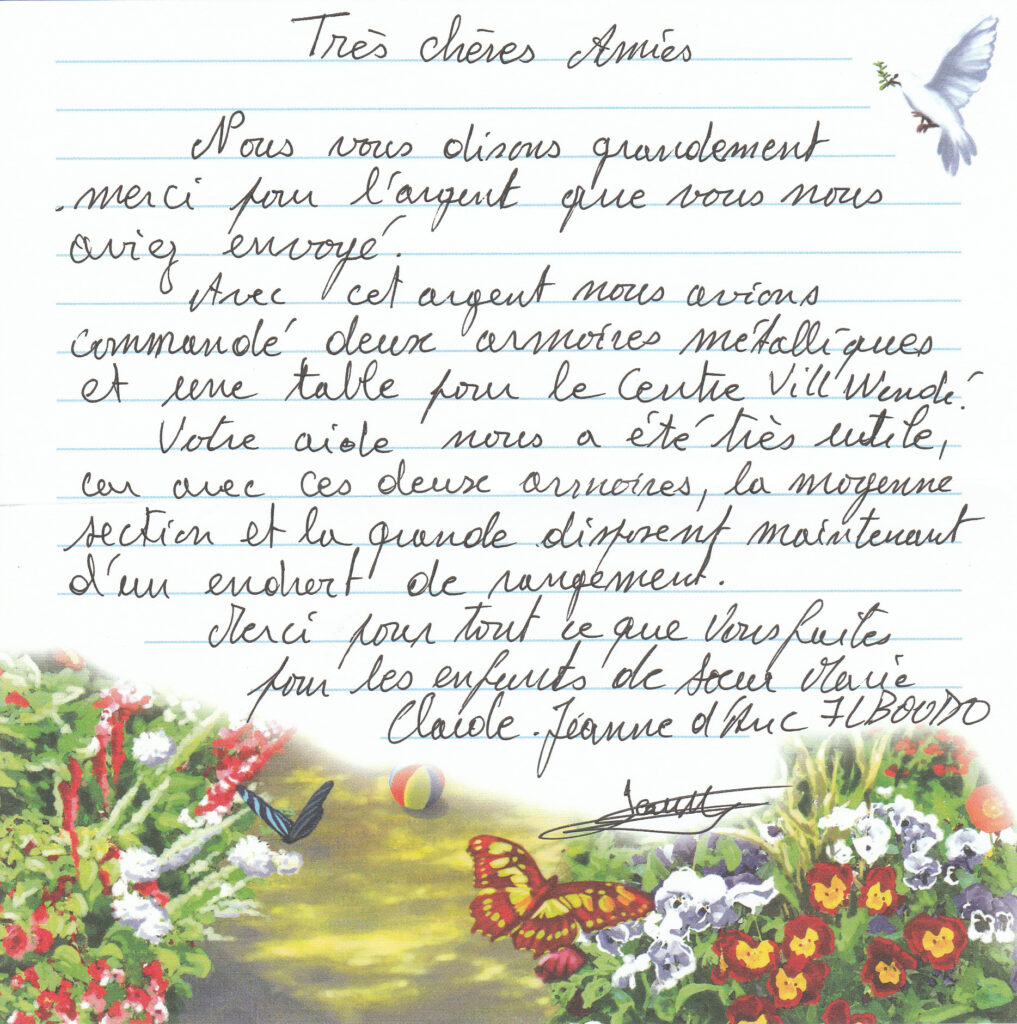 Très chères Amies
Nous vous disons grandement
merci pour l'argent que vous nous
aviez envoyé.
Avec cet argent nous avions
commandé deux armoires métalliques
et une table pour le Centre Vill Wendé.
Votre aide nous a été très utile,
car avec ces deux armoires, la moyenne
section et la grande disposent maintenant
d'un endroit de rangement.
Merci pour tout ce que vous faites
pour les enfants de Sœur Marie
Claude. Jéanne d'Arc ILBOUDO